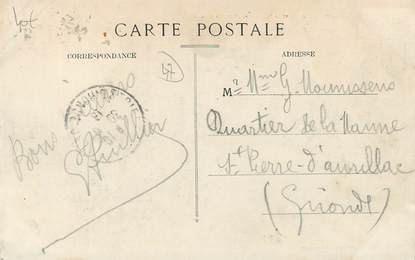 Lot
CARTE POSTALE
CORRESPONDANCE
ADRESSE
47
M? Mme G. Mounissens
Quartier de la Nanne
St Pierre-d'aurillac
(Gironde)
Bons